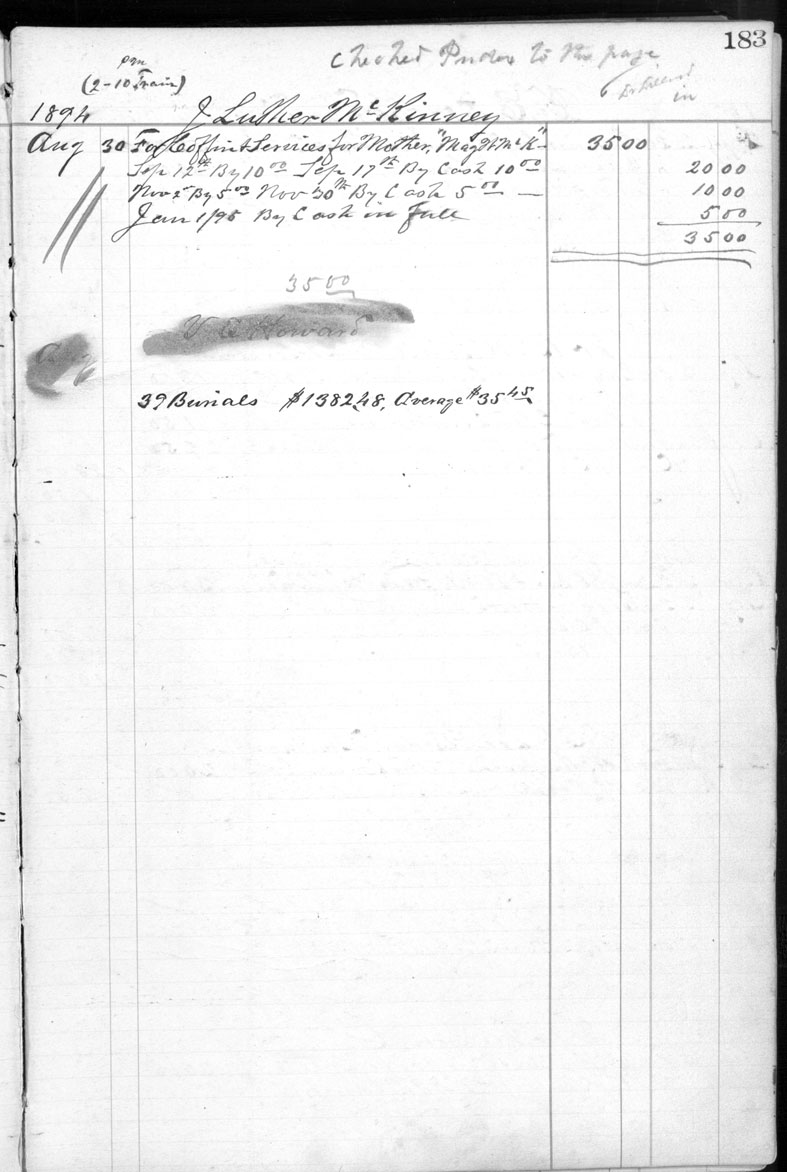 183
Checked Index to this page
in
pm
(2-10 Train)
1894 J Luther McKinney
Aug 30 For Coffin & Services for Mother, "May H McK" 35 00
Sep 12th By 10 00 Sep 17th By Cash 10 00 20 00
Nov 2d By 5 00 Nov 30th By Cash 5 00 — 10 00
Jan 1/95 By Cash in Full 5 00
35 00
35 00
V C Howard
39 Burials $1382.48, Average $35 45